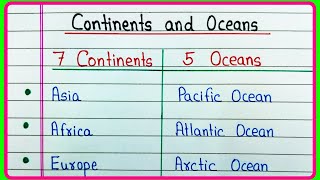 Continents and Oceans
7 Continents 5 Oceans
Asia Pacific Ocean
Africa Atlantic Ocean
Europe Arctic Ocean